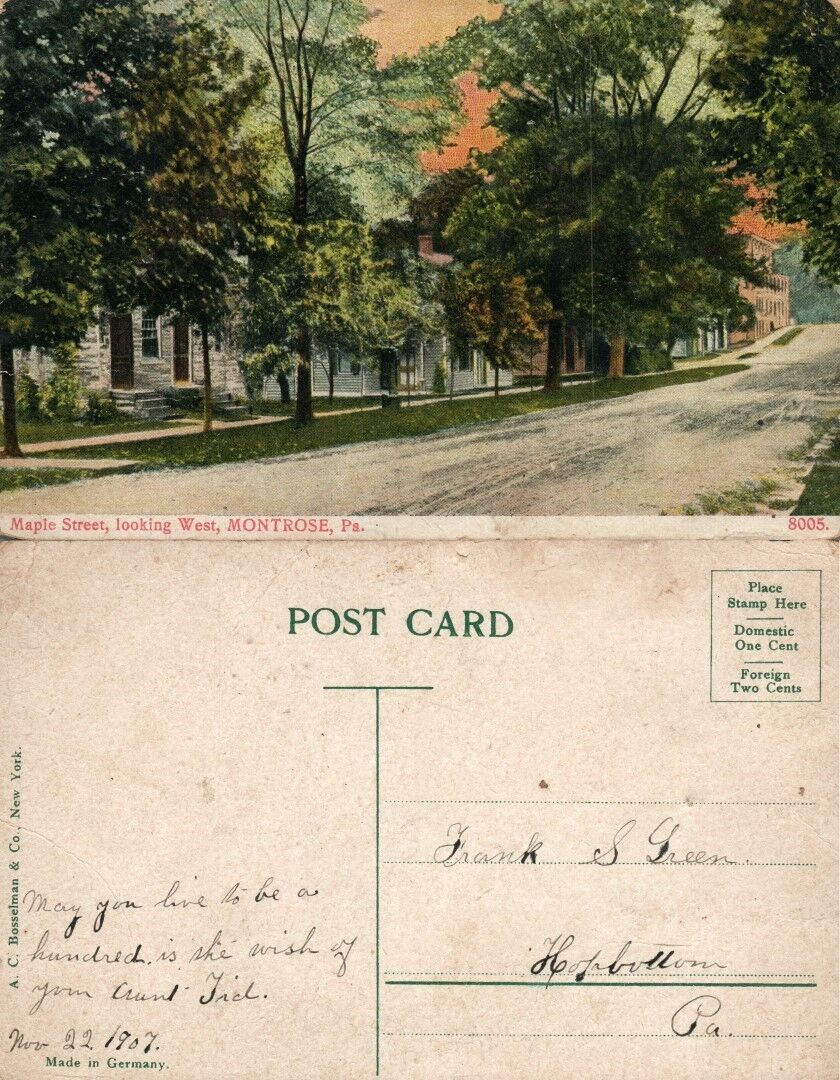 Maple Street, looking West, MONTROSE, Pa.
8005.
POST CARD
Place
Stamp Here
Domestic
One Cent
Foreign
Two Cents
A. C. Bosselman & Co., New York.
May you live to be a
hundred. is the wish of
your Aunt Tid.
Nov 22. 1907.
Made in Germany.
Frank S Green.
Hopbottom
Pa.